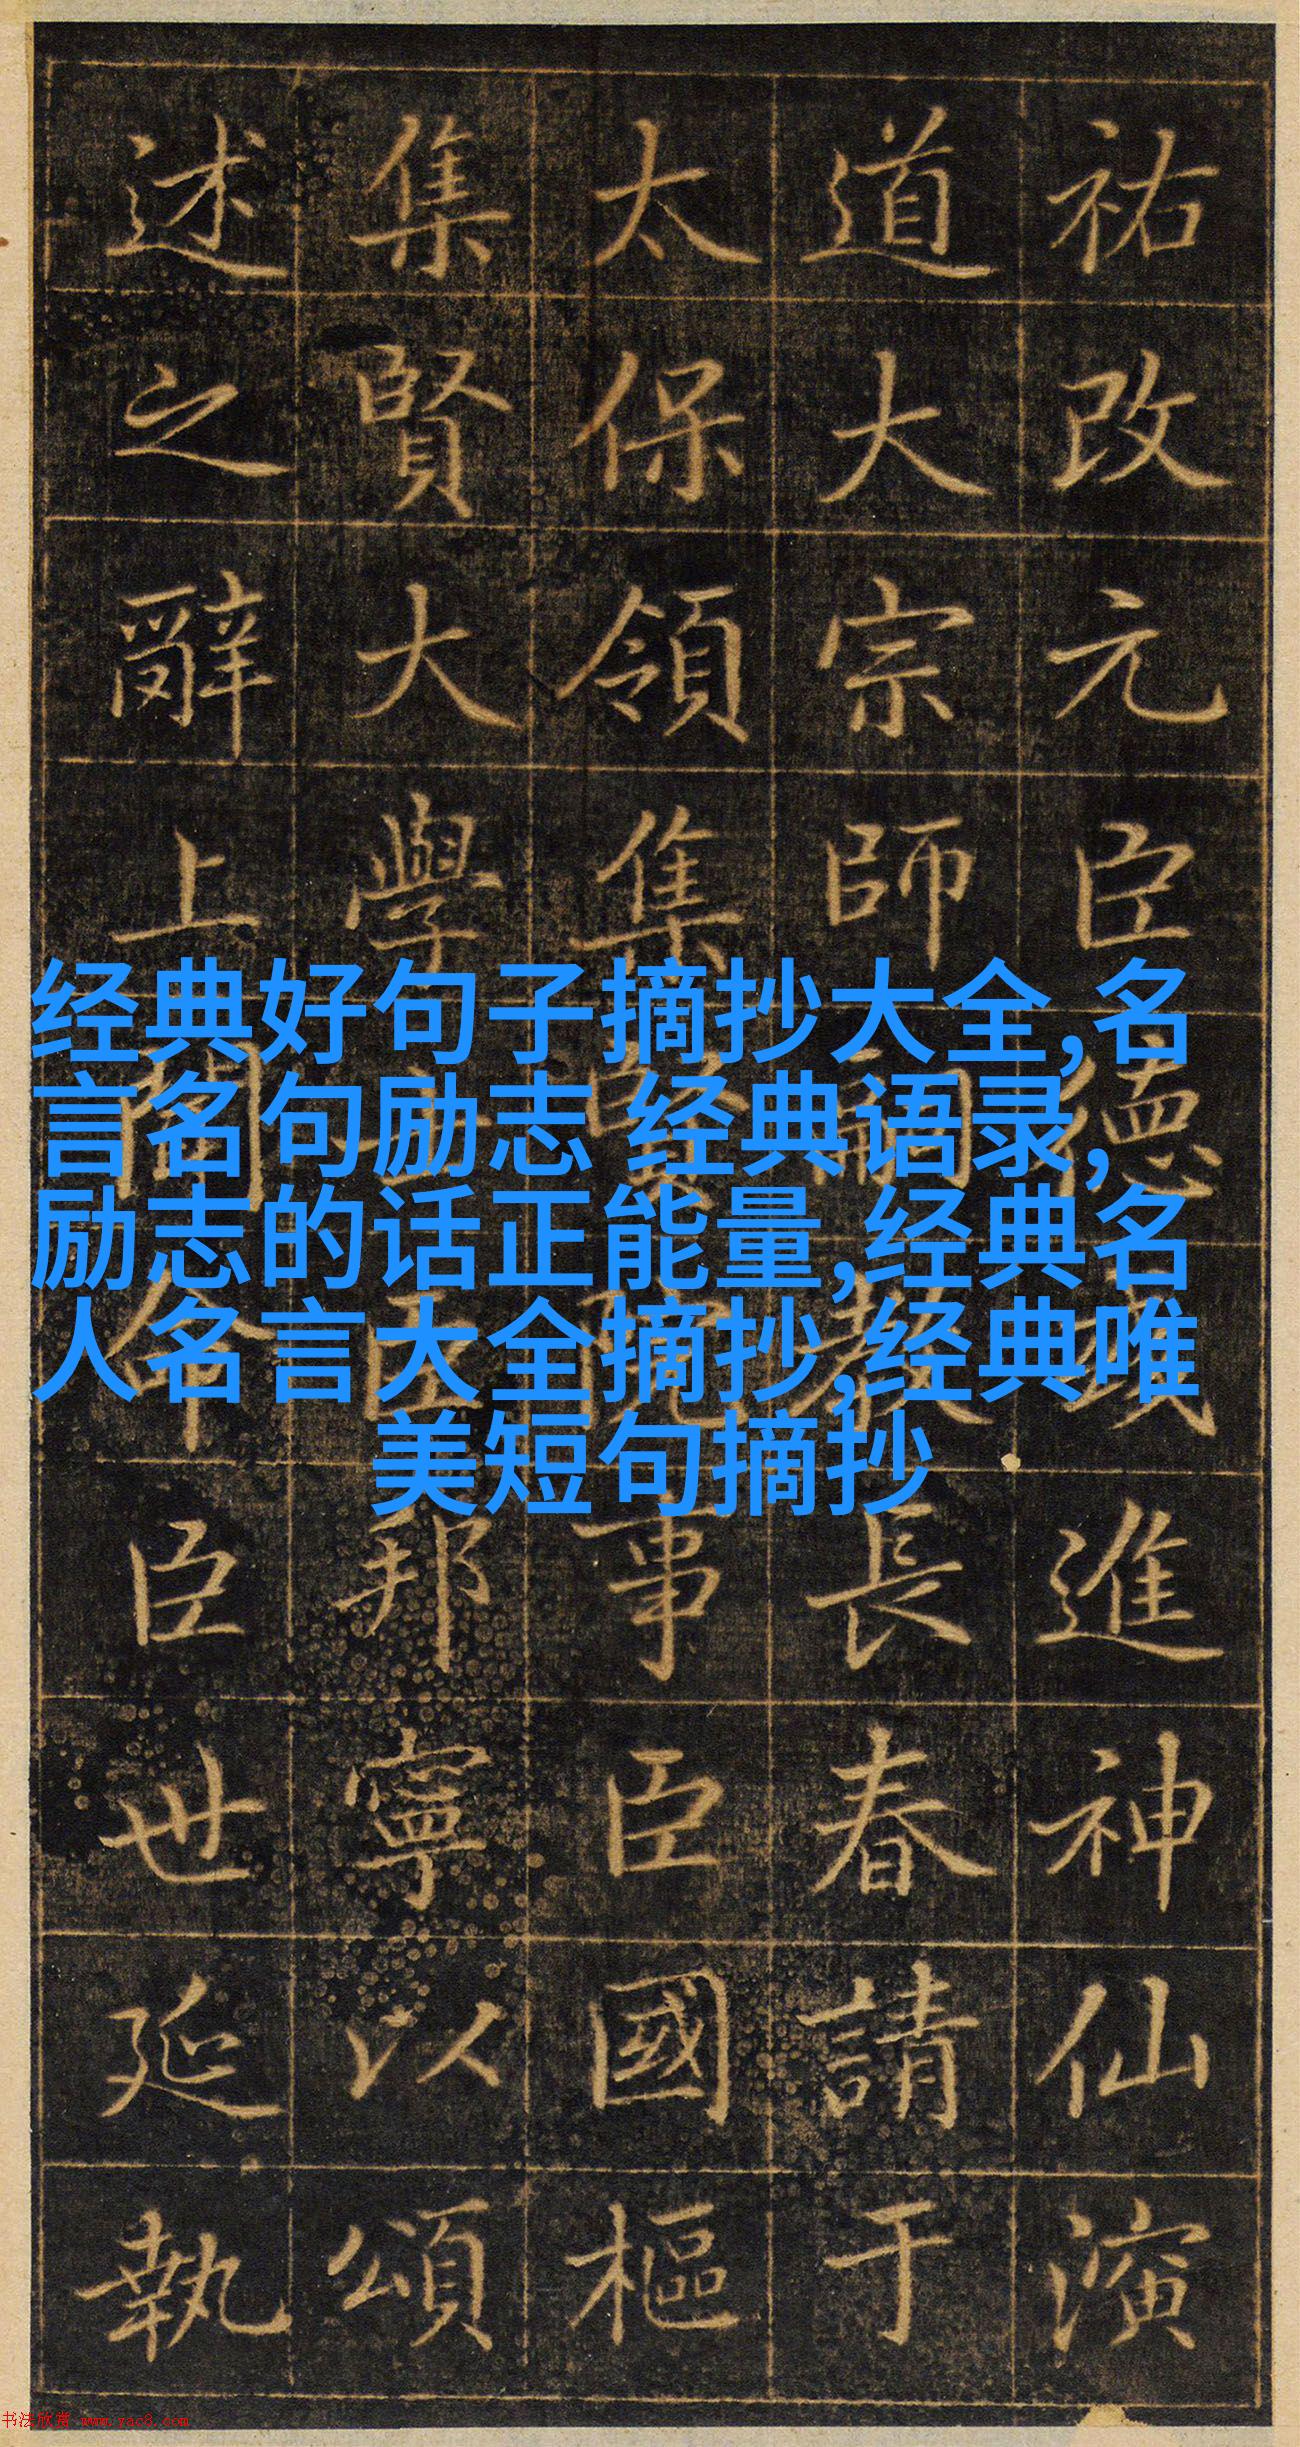 祐改元臣德彧進神仙演
道大宗師嗣教長春請于
太保領集賢院事臣國樞
集賢大學士臣邦寧以頌
述之辭上聞命臣世延執
经典好句子摘抄大全,名
言名句励志 经典语录,
励志的话正能量,经典名
人名言大全摘抄,经典唯
美短句摘抄
书法欣赏 www.yac8.com